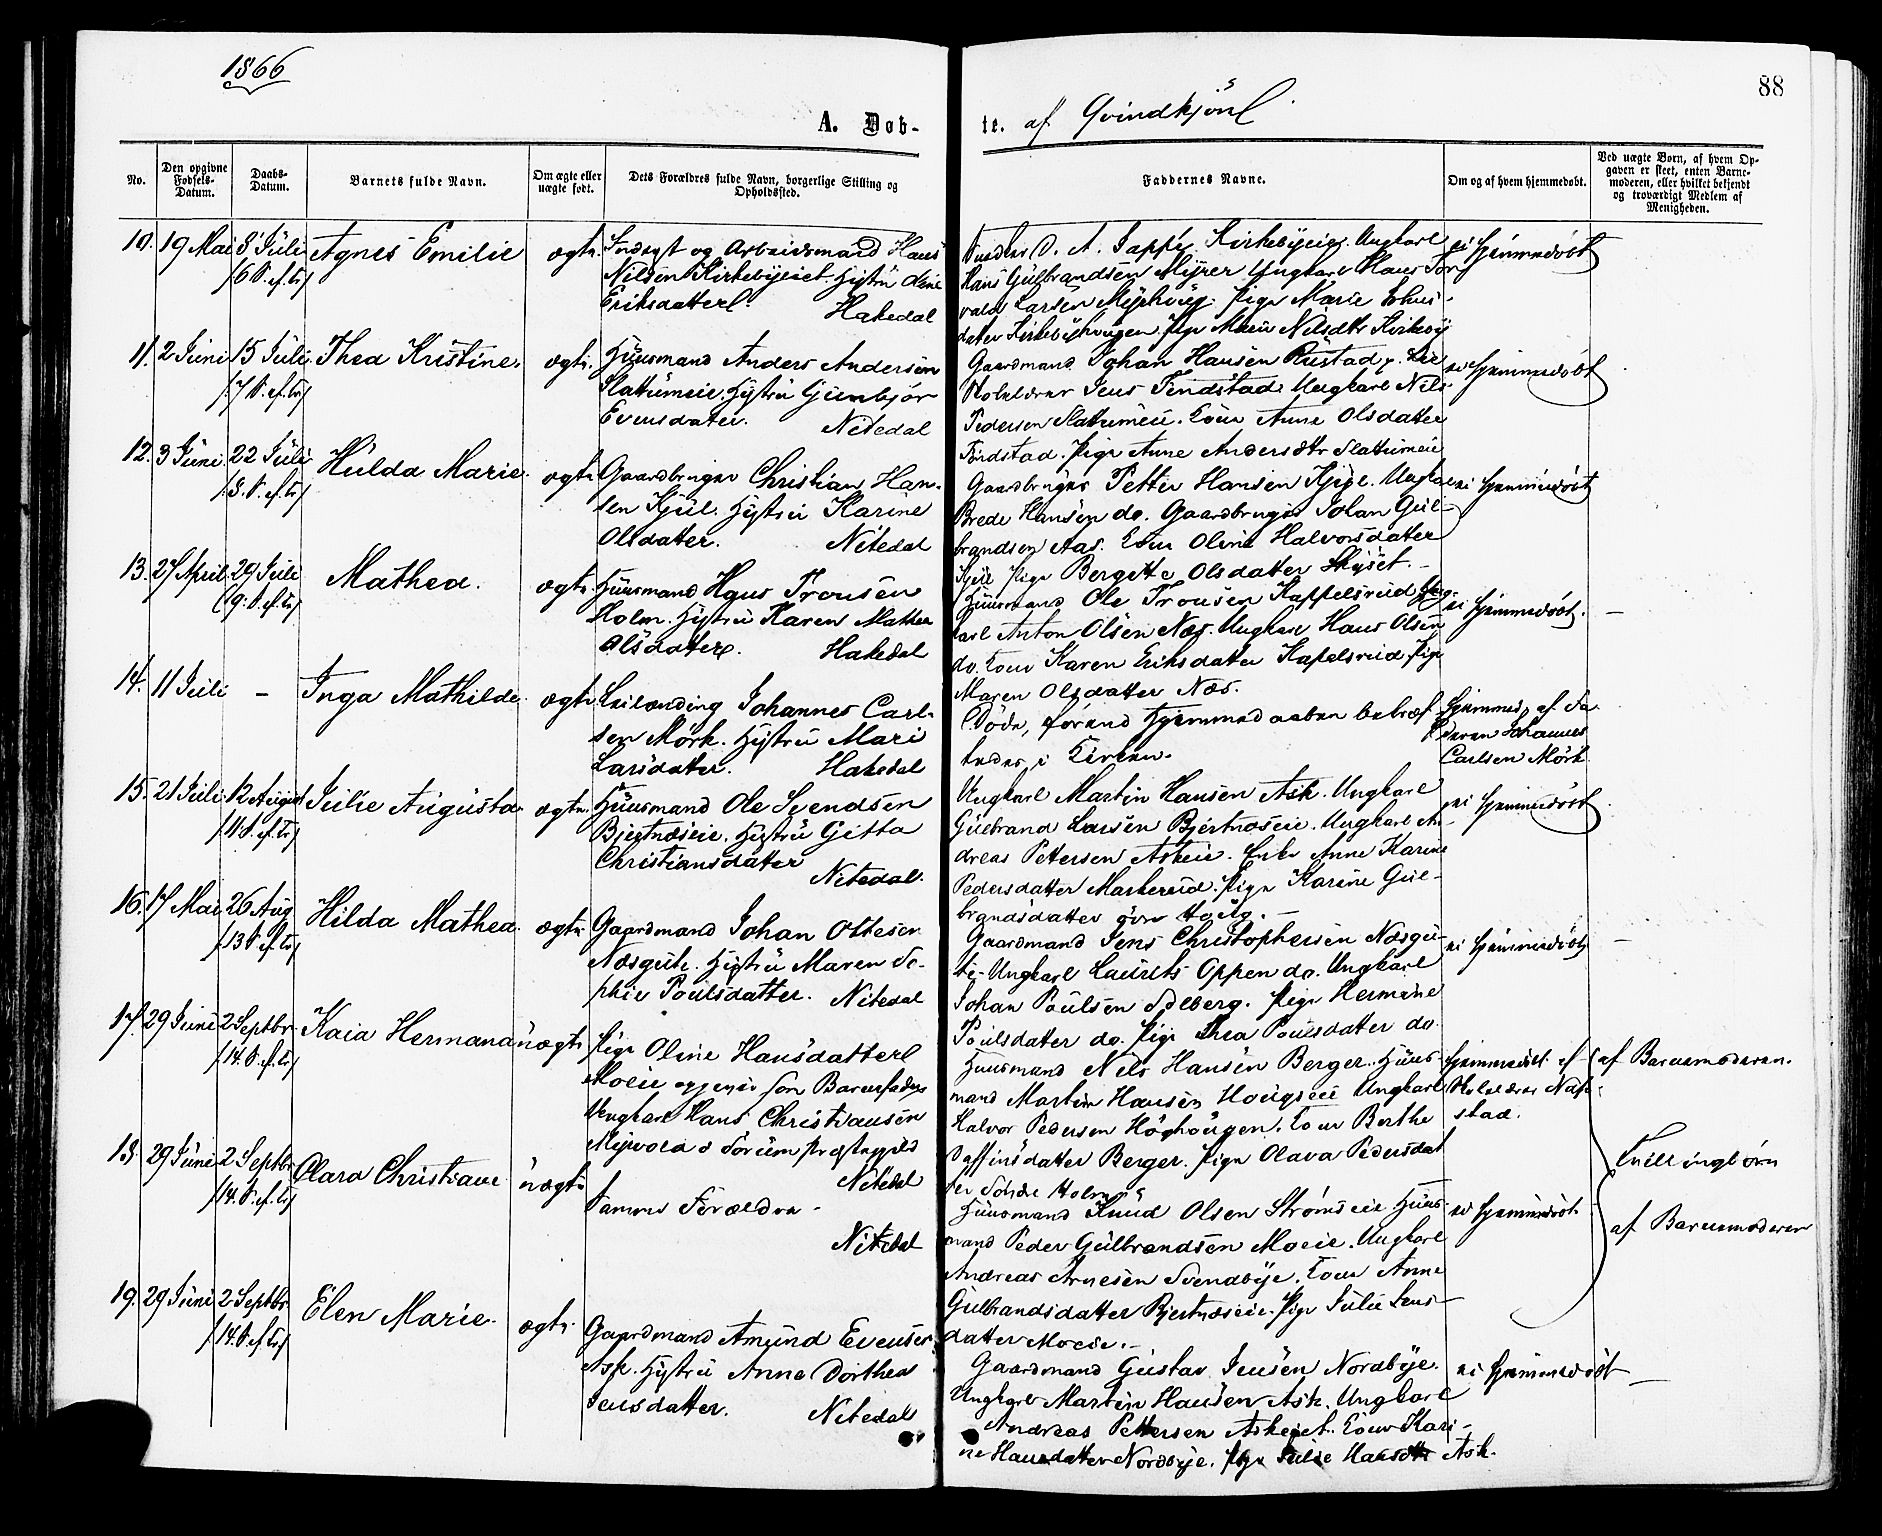 1866
88
A. Døb-
te. af Qvindkjön
No.
Den opgivne Fødsels-Datum.
Daabs-Datum.
Barnets fulde Navn.
Om ægte eller uægte født.
Dets Forældres fulde Navn, borgerlige Stilling og Opholdssted.
Faddernes Navne.
Om og af hvem hjemmedøbt.
Ved uægte Børn, af hvem Opgaven er skeet, enten Barnemoderen, eller hvilket bekjendt og troværdigt Medlem af Menigheden.
10. 19 Mai 8 Juli Agnes Emilie ægte Indsgt og Arbeidsmand Hans
/6 S. ef. Tr/ Nilsen Kirkebyeiet. Hustru Oline
Eriksdatter. Hakedal
D. A. Sappe, Kirkebyeie. Ungkarl
Hans Gulbrandsen Myrer Ungkarl Hans Tor
vald Larsen Myrhoug. Pige Marie
datter Kirkebyhougen. Pige Maria Nilsdtr Kirkeby
ei hjemmedöbt
11. 2 Juni 15 Juli Thea Kristine. ægte. Huusmand Anders Andersen
/7 S. ef. Tr/ Slattumeie. Hustru Gunbjör
Evensdatter. Nitedal
Gaardmand Johan Hansen Rustad,
Jens Tindstad. Ungkarl Nils
Pedersen Slattumeie. Kone Anne Olsdatter
Tindstad. Pige Anne Andersdtr Slattumeie
ei hjemmedöbt
12. 3 Juni 22 Juli Hulda Marie. ægte Gaardbruger Christian Han-
/8. S. ef. Tr/ sen Kjul. Hustru Karine
Olsdatter. Nitedal
Gaardbruger Petter Hansen Kjul. Ungkarl
Brede Hansen do. Gaardbruger Johan Gul-
brandsen Aas. Kone Oline Halvorsdatter
Kjul Pige Bergitte Olsdatter Skyset.
ei hjemmedöbt
13. 27 April 29 Juli Mathea. ægte Huusmand Hans Tronsen
/9. S. ef. Tr/ Holm. Hustru Karen Mathea
Olsdatter. Hakedal
Huusmand Ole Tronsen Kappelsrud Ung-
karl Anton Olsen Næs. Ungkarl Hans Olsen
do. Kone Karen Eriksdatter Kapelsrud Pige
Maren Olsdatter Næs.
ei hjemmedöbt. —
14. 11 Juli — Inga Mathilde ægte Leilænding Johannes Carl-
sen Mörk. Hustru Mari
Larsdatter. Hakedal
Döde, förend Hjemmedaaben bekræf-
tedes i Kirken.
Hjemmed. af Fa-
deren Johannes
Carlsen Mörk.
15. 21 Juli 12 August Julie Augusta ægte Huusmand Ole Svendsen
/11 S. ef. Tr/ Bjertnæseie. Hustru Gitta
Christiansdatter
Nitedal.
Ungkarl Martin Hansen Ask. Ungkarl
Gulbrand Larsen Bjertnæseie. Ungkarl An-
dreas Pettersen Askeie. Enke Anne Karine
Pedersdatter Markerud. Pige Karine Gul-
brandsdatter övre Houg. —
ei hjemmedöbt
16. 17 Mai 26 Aug Hilda Mathea. ægte Gaardmand Johan Ottesen
/13 S. ef. Tr/ Næsgute. Hustru Maren So-
phie Poulsdatter. Nitedal
Gaardmand Jens Christophersen Næsgu-
te. Ungkarl Laurits Oppen do. Ungkarl
Johan Poulsen Solberg. Pige Hermine
Poulsdatter do. Pige Thea Poulsdatter do.
ei hjemmedöbt —
17. 29 Juni 2 Septbr Kaia Hermana uægte Pige Oline Hansdatter
/14 S. ef. Tr/ Moeie angiver som Barnefader
Ungkarl Hans Christiansen
Mejvold i Sorum Præstegjeld
Nitedal
Huusmand Nils Hansen Berger. Huus-
mand Martin Hansen Hougseie Ungkarl
Halvor Pedersen Höghougen. Kone Berthe
datter Berger. Pige Olava Pedersdat
ter Söndre Holm
Hjemmedöbt af
stad.
af Barnemoderen.
18. 29 Juni 2 Septbr Clara Christiane uægte Samme Forældre —
/14. S. ef. Tr/ Nitedal
Huusmand Knud Olsen Strömseie. Huus-
mand Peder Gulbrandsen Moeie. Ungkarl
Andreas Arnesen Svendbye. Kone Anne
Gulbrandsdatter Bjertnæseie. Pige Julie Jens-
datter Moeie. —
ei hjemmedöbt
Tvillingbörn
af Barnemoderen
19. 29 Juni 2 Septbr Elen Marie. ægte. Gaardmand Amund Evensen
/14. S. ef. Tr/ Ask. Hustru Anne Dorthea
Jensdatter. Nitedal
Gaardmand Gustav Jensen Nordbye.
Ungkarl Martin Hansen Ask. Ungkarl
Andreas Pettersen Askeiet. Kone Kari-
ne Hansdatter Nordbye. Pige Julie Hansdtr Ask.
ei hjemmedöbt —